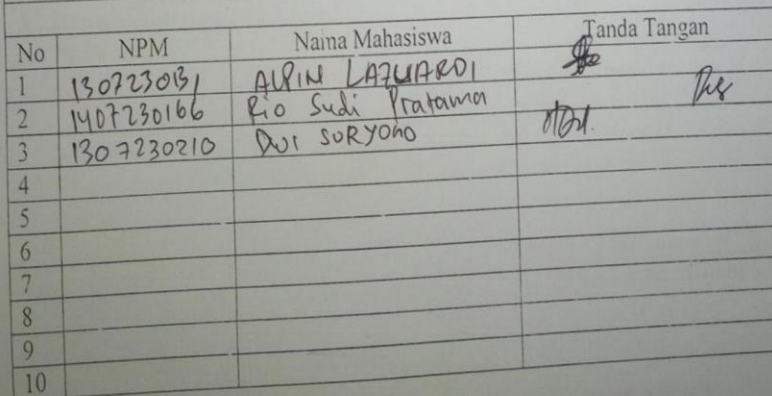 No NPM Nama Mahasiswa Tanda Tangan
1 1307230131 ALPIN LAZUARDI
2 1407230166 Rio Sudi Pratama
3 1307230210 DWI SURYONO
4
5
6
7
8
9
10